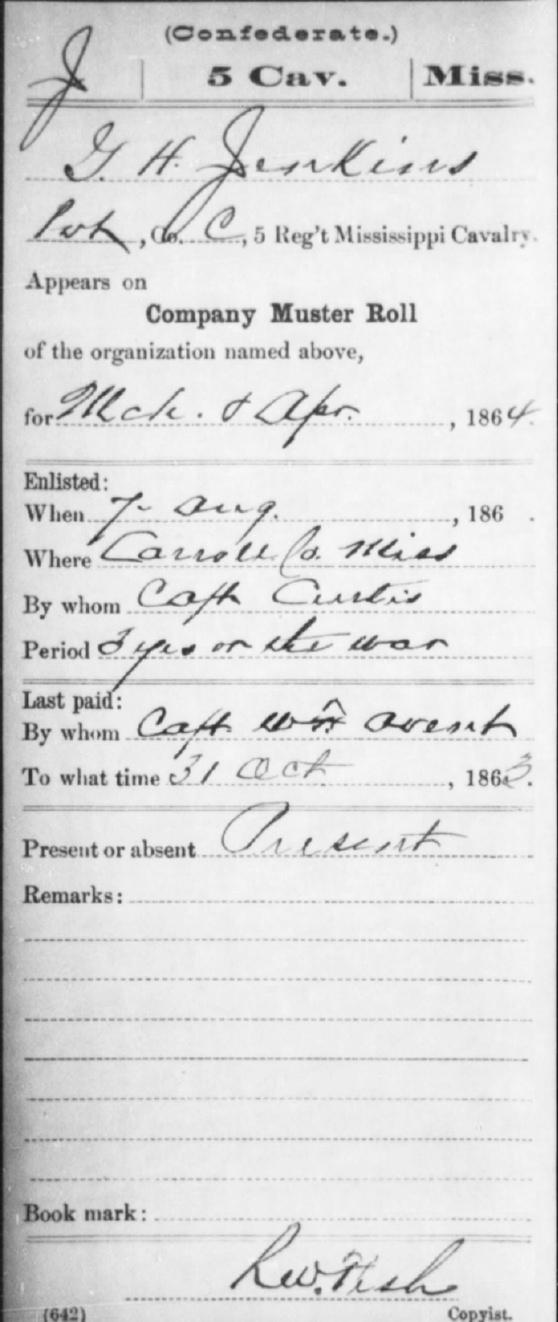 (Confederate.)
J | 5 Cav. | Miss.
G. H. Jenkins
Pvt, Co. C, 5 Reg't Mississippi Cavalry.
Appears on
Company Muster Roll
of the organization named above,
for Mch. & Apr. , 1864.
Enlisted:
When 7 Aug. , 186 .
Where Carroll Co. Miss
By whom Capt Curtis
Period 3 yrs or the war
Last paid:
By whom Capt Wm Avent
To what time 31 Oct , 1863.
Present or absent Present
Remarks:
Book mark:
(642)
Copyist.